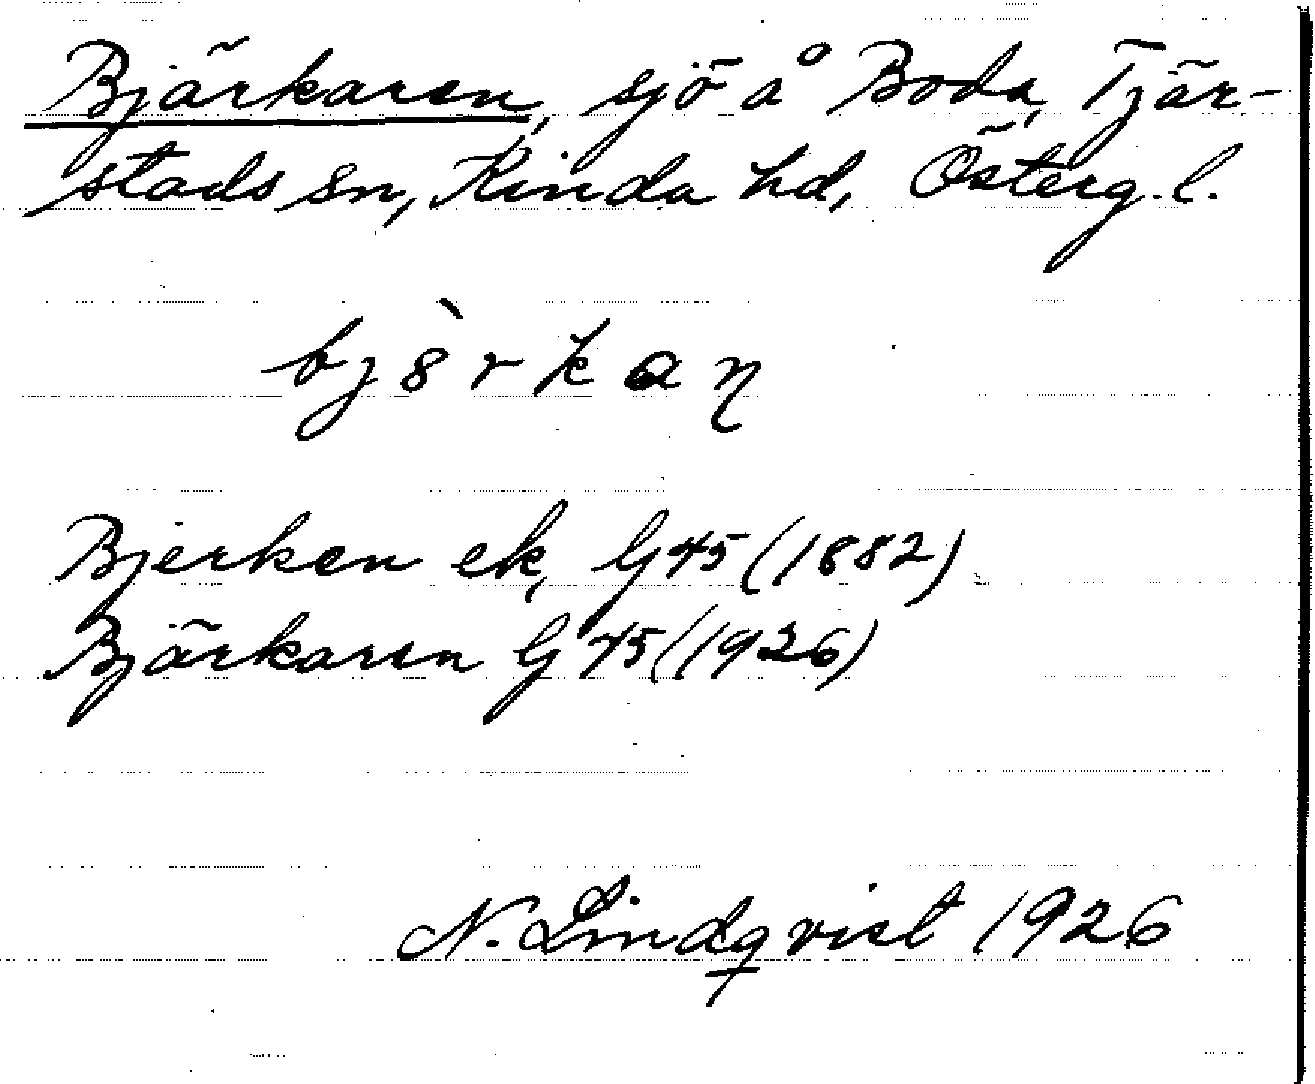 Bjärkaren, sjö å Boda, Tjär-
stads sn, Kinda hd, Österg. l.
bjärkaŋ
Bjerken ek, G45 (1882)
Bjärkaren G 45 (1926)
N. Lindqvist 1926